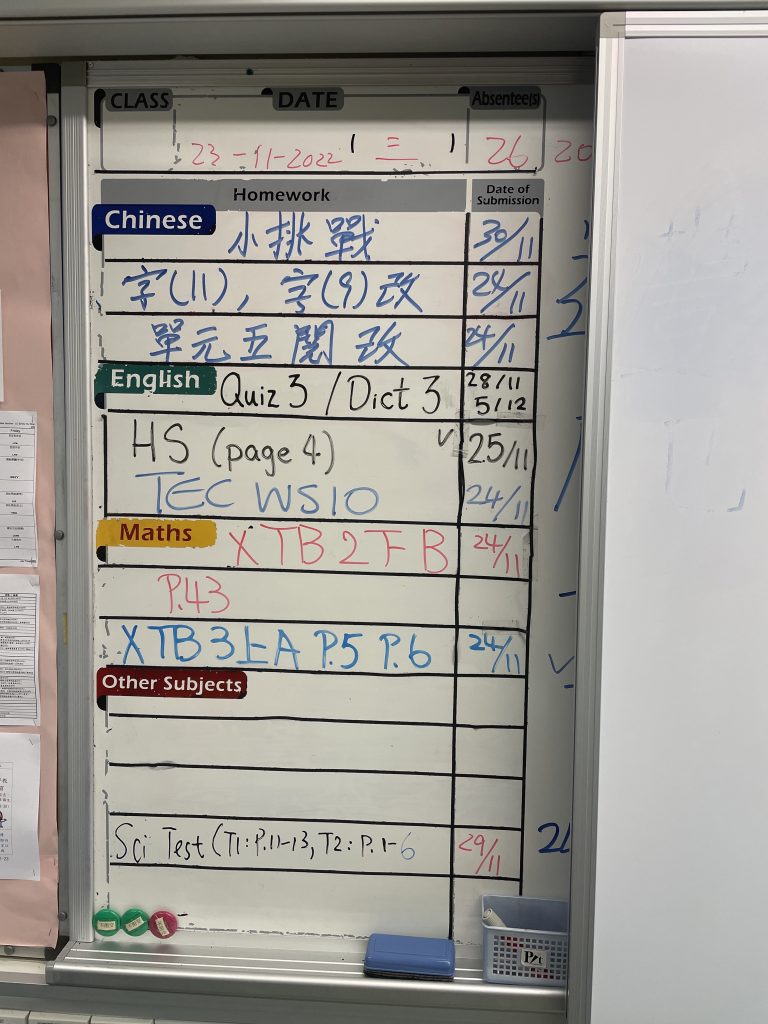 CLASS DATE Absentee(s)
23-11-2022 (三) 26 20
Homework Date of Submission
Chinese 小挑戰 30/11
字(11), 字(9)改 24/11
單元五閱改 24/11
English Quiz 3 / Dict 3 28/11 5/12
HS (page 4) √ 25/11
TEC WS10 24/11
Maths X TB 2下B 24/11
P.43
X TB 3上A P.5 P.6 24/11
Other Subjects
Sci Test (T1: P.11-13, T2: P.1-6 29/11
P/t